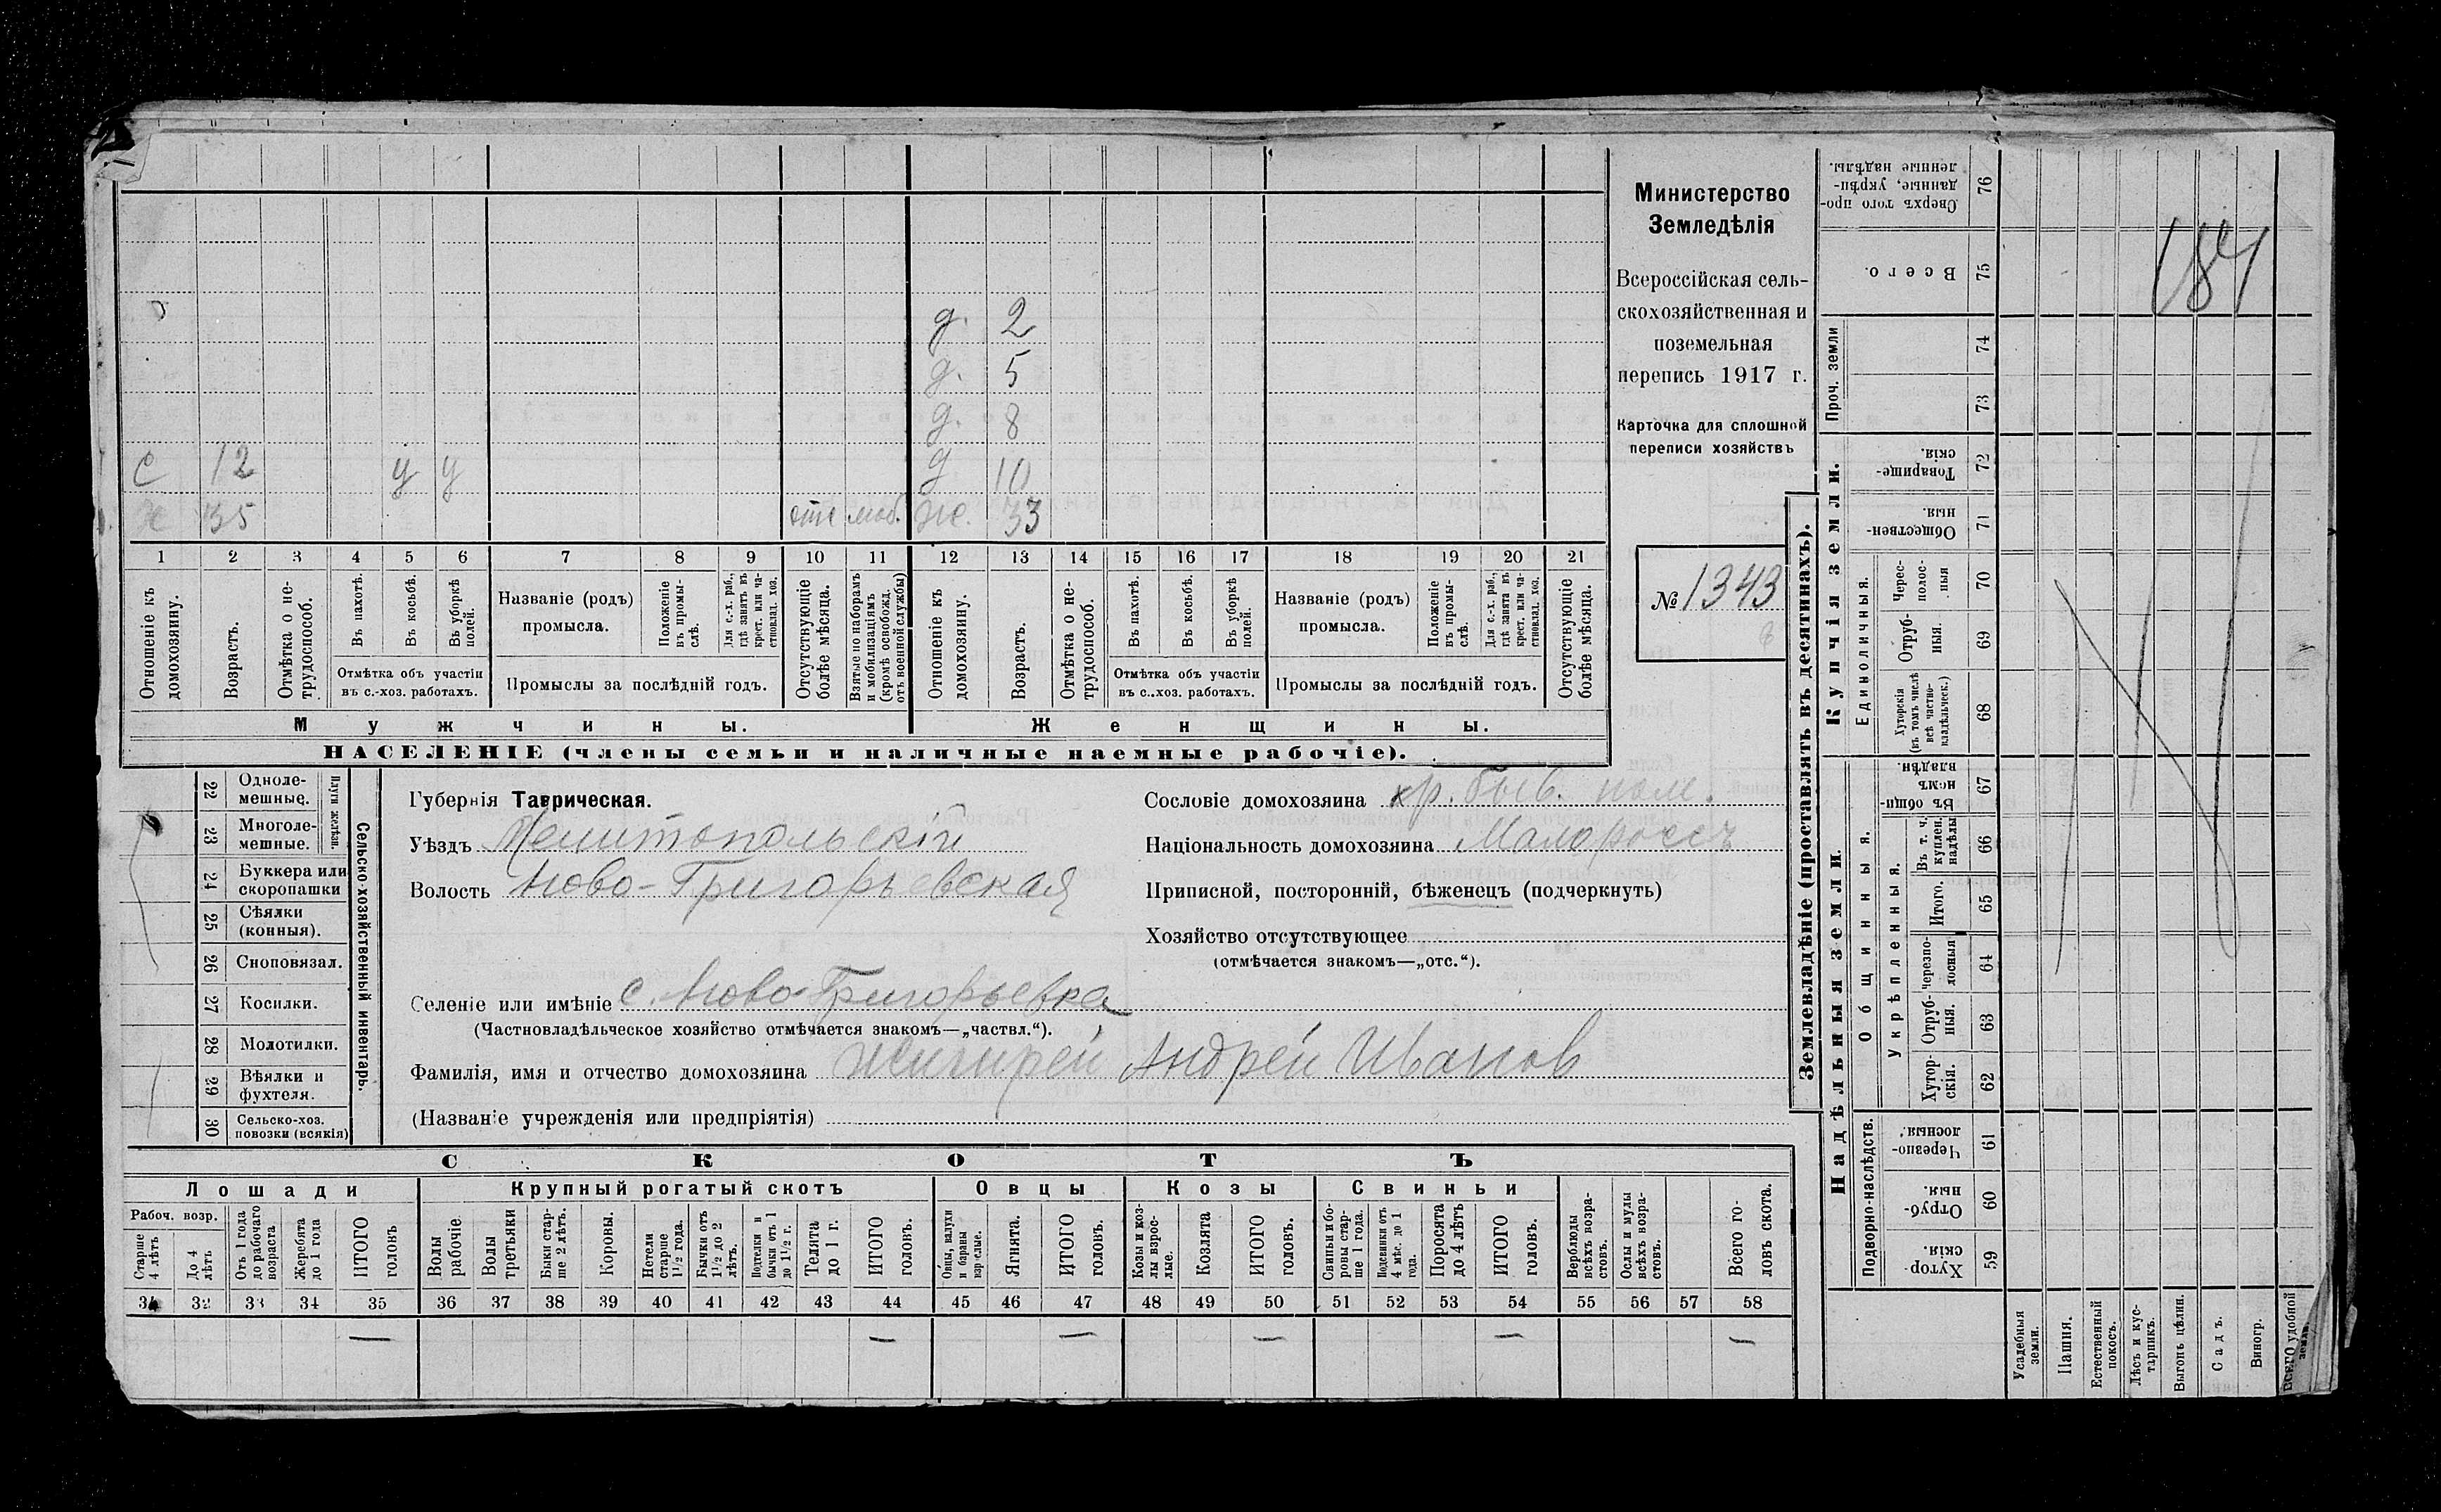 Министерство
Земледѣлія
Всероссійская сель-
скохозяйственная и
поземельная
перепись 1917 г.
Карточка для сплошной
переписи хозяйствъ
№ 1343
д. 2
д. 5
д. 8
с 12 у у д 10
х 35 отс моб. ж. 33
1 2 3 4 5 6 7 8 9 10 11 12 13 14 15 16 17 18 19 20 21
Отношеніе къ домохозяину.
Возрастъ.
Отмѣтка о не-трудоспособ.
Въ пахотѣ.
Въ косьбѣ.
Въ уборкѣ полей.
Отмѣтка объ участіи
въ с.-хоз. работахъ.
Названіе (родъ)
промысла.
Положеніе въ промы-слѣ.
Для с.-х. раб., гдѣ занятъ въ крест. или ча-стновлад. хоз.
Промыслы за послѣдній годъ.
Отсутствующіе болѣе мѣсяца.
Взятые по наборамъ и мобилизаціямъ (кромѣ освобожд. отъ военной службы)
Отношеніе къ домохозяину.
Возрастъ.
Отмѣтка о не-трудоспособ.
Въ пахотѣ.
Въ косьбѣ.
Въ уборкѣ полей.
Отмѣтка объ участіи
въ с..хоз. работахъ.
Названіе (родъ)
промысла.
Положеніе въ промы-слѣ.
Для с.-х. раб., гдѣ занята въ крест. или ча-стновлад. хоз.
Промыслы за послѣдній годъ.
Отсутствующіе болѣе мѣсяца.
Мужчины.
Женщины.
НАСЕЛЕНІЕ (члены семьи и наличные наемные рабочіе).
Сельско-хозяйственный инвентарь.
Плуги желѣзн.
22 Одноле-мешные.
23 Многоле-мешные.
24 Буккера или скоропашки
25 Сѣялки (конныя).
26 Сноповязал.
27 Косилки.
28 Молотилки.
29 Вѣялки и фухтеля.
30 Сельско-хоз. повозки (всякія)
Губернія Таврическая.
Уѣздъ Мелитопольскій
Волость Ново-Григорьевская
Селеніе или имѣніе с. Ново-Григорьевка
(Частновладѣльческое хозяйство отмѣчается знакомъ—„частвл.“).
Фамилія, имя и отчество домохозяина Жигирей Андрей Иванов
(Названіе учрежденія или предпріятія)
Сословіе домохозяина кр. быв. пом.
Національность домохозяина Малороссъ
Приписной, посторонній, бѣженецъ (подчеркнуть)
Хозяйство отсутствующее
(отмѣчается знакомъ—„отс.“).
СКОТЪ
Лошади
Крупный рогатый скотъ
Овцы
Козы
Свиньи
Рабоч. возр.
Старше 4 лѣтъ
До 4 лѣтъ
Отъ 1 года до рабочаго возраста
Жеребята до 1 года
ИТОГО головъ
Волы рабочіе.
Волы третьяки
Быки стар-ше 2 лѣтъ.
Коровы.
Нетели старше 1 1/2 года.
Бычки отъ 1 1/2 до 2 лѣтъ.
Подтелки и бычки отъ 1 до 1 1/2 г.
Телята до 1 г.
ИТОГО головъ.
Овцы, валухи и бараны взрослые.
Ягнята.
ИТОГО головъ.
Козы и коз-лы взрос-лые.
Козлята
ИТОГО головъ.
Свиньи и бо-ровы стар-ше 1 года.
Подсвинки отъ 4 мѣс. до 1 года.
Поросята до 4 лѣтъ
ИТОГО головъ.
Верблюды всѣхъ возра-стовъ.
Ослы и мулы всѣхъ возра-стовъ.
Всего го-ловъ скота.
31 32 33 34 35 36 37 38 39 40 41 42 43 44 45 46 47 48 49 50 51 52 53 54 55 56 57 58
— — — — — —
Землевладѣніе (проставлять въ десятинахъ).
Надѣльныя земли.
Купчія земли.
Проч. земли
Подворно-наслѣдств.
Общинныя.
Укрѣпленныя.
Единоличныя.
Сверхъ того про-данные, укрѣп-ленные надѣлы. 76
Всего. 75
74
73
Товарище-скія. 72
Обществен-ныя. 71
Черес-полос-ныя 70
Отруб-ныя. 69
Хуторскія (въ томъ числѣ всѣ частно-владѣльческ.) 68
Въ общи-номъ владѣн. 67
Въ т. ч. куплен. надѣлы 66
Итого. 65
Черезпо-лосныя 64
Отруб-ныя. 63
Хутор-скія. 62
Черезпо-лосныя. 61
Отруб-ныя. 60
Хутор-скія. 59
Усадебныя земли.
Пашня.
Естественный покосъ.
Лѣсъ и кус-тарникъ.
Выгонъ цѣлин.
Садъ.
Виногр.
ВСЕГО удобной земли.